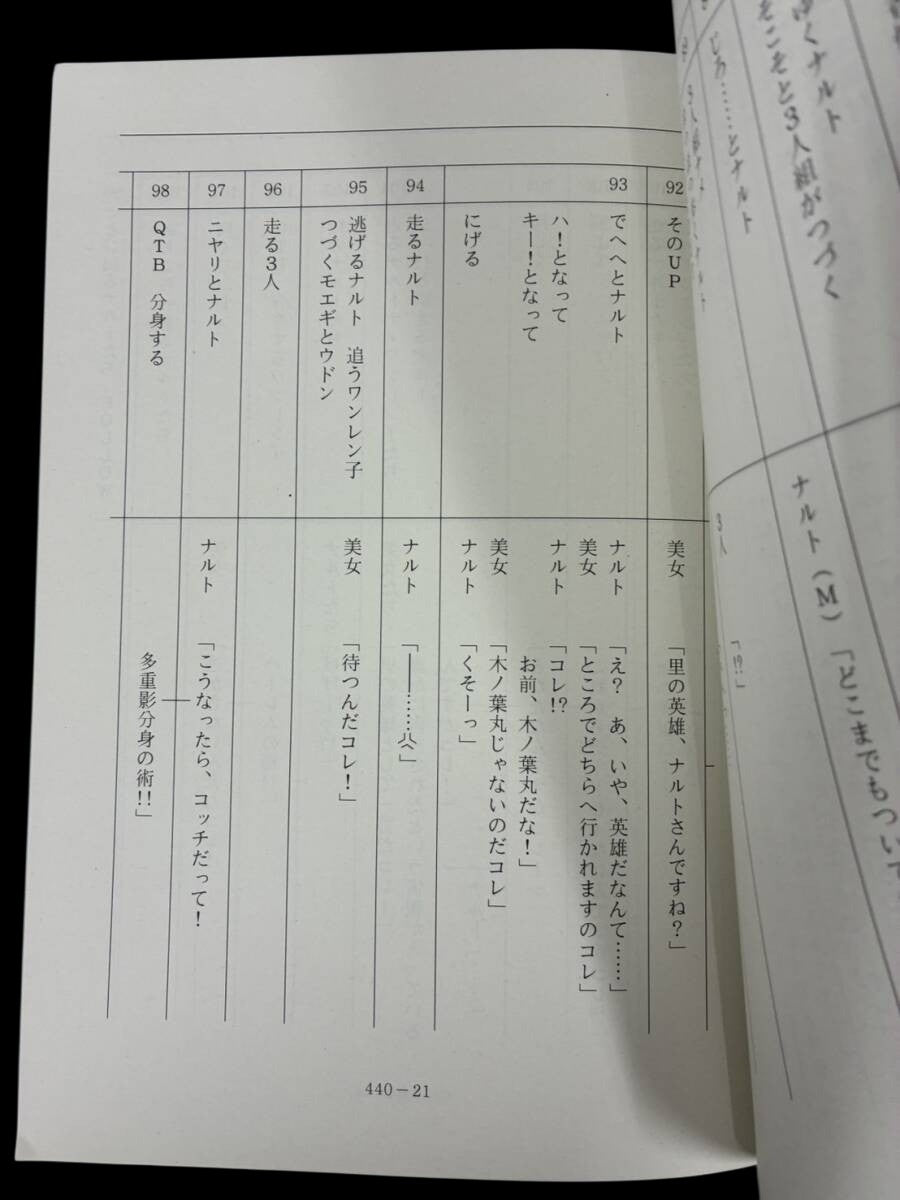 ゆくナルト
そこそと3人組がつづく
じろ……とナルト
ナルト(M)「どこまでもついて
3人「!?」
92
そのUP
美女「里の英雄、ナルトさんですね?」
93
でへへとナルト
ナルト「え? あ、いや、英雄だなんて……」
美女「ところでどちらへ行かれますのコレ」
ハ!となって
ナルト「コレ!?
キー!となって
お前、木ノ葉丸だな!」
美女「木ノ葉丸じゃないのだコレ」
にげる
ナルト「くそーっ」
94
走るナルト
ナルト「――……」
95
逃げるナルト 追うワンレン子
つづくモエギとウドン
美女「待つんだコレ!」
96
走る3人
97
ニヤリとナルト
ナルト「こうなったら、コッチだって!
98
QTB 分身する
多重影分身の術!!」
440-21